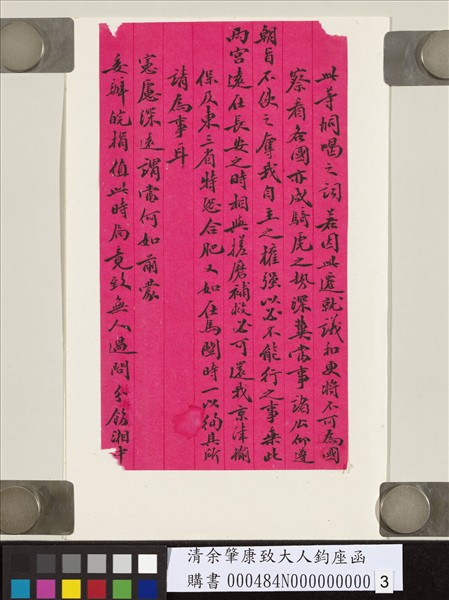 此等恫喝之詞若因此遷就議和更將不可為國
察看各國亦成騎虎之勢深冀當事諸公仰遵
朝旨不使之奪我自主之權強以必不能行之事乘此
兩宮遠在長安之時相與搓磨補救必可還我京津揃
保及東三省特恐合肥又如在馬關時一以徇其所
請為事耳
憲慮深遠謂當何如前蒙
委辦皖捐值此時局竟致無人過問分飭湘中
清余肇康致大人鈞座函
購書 000484N000000000 3